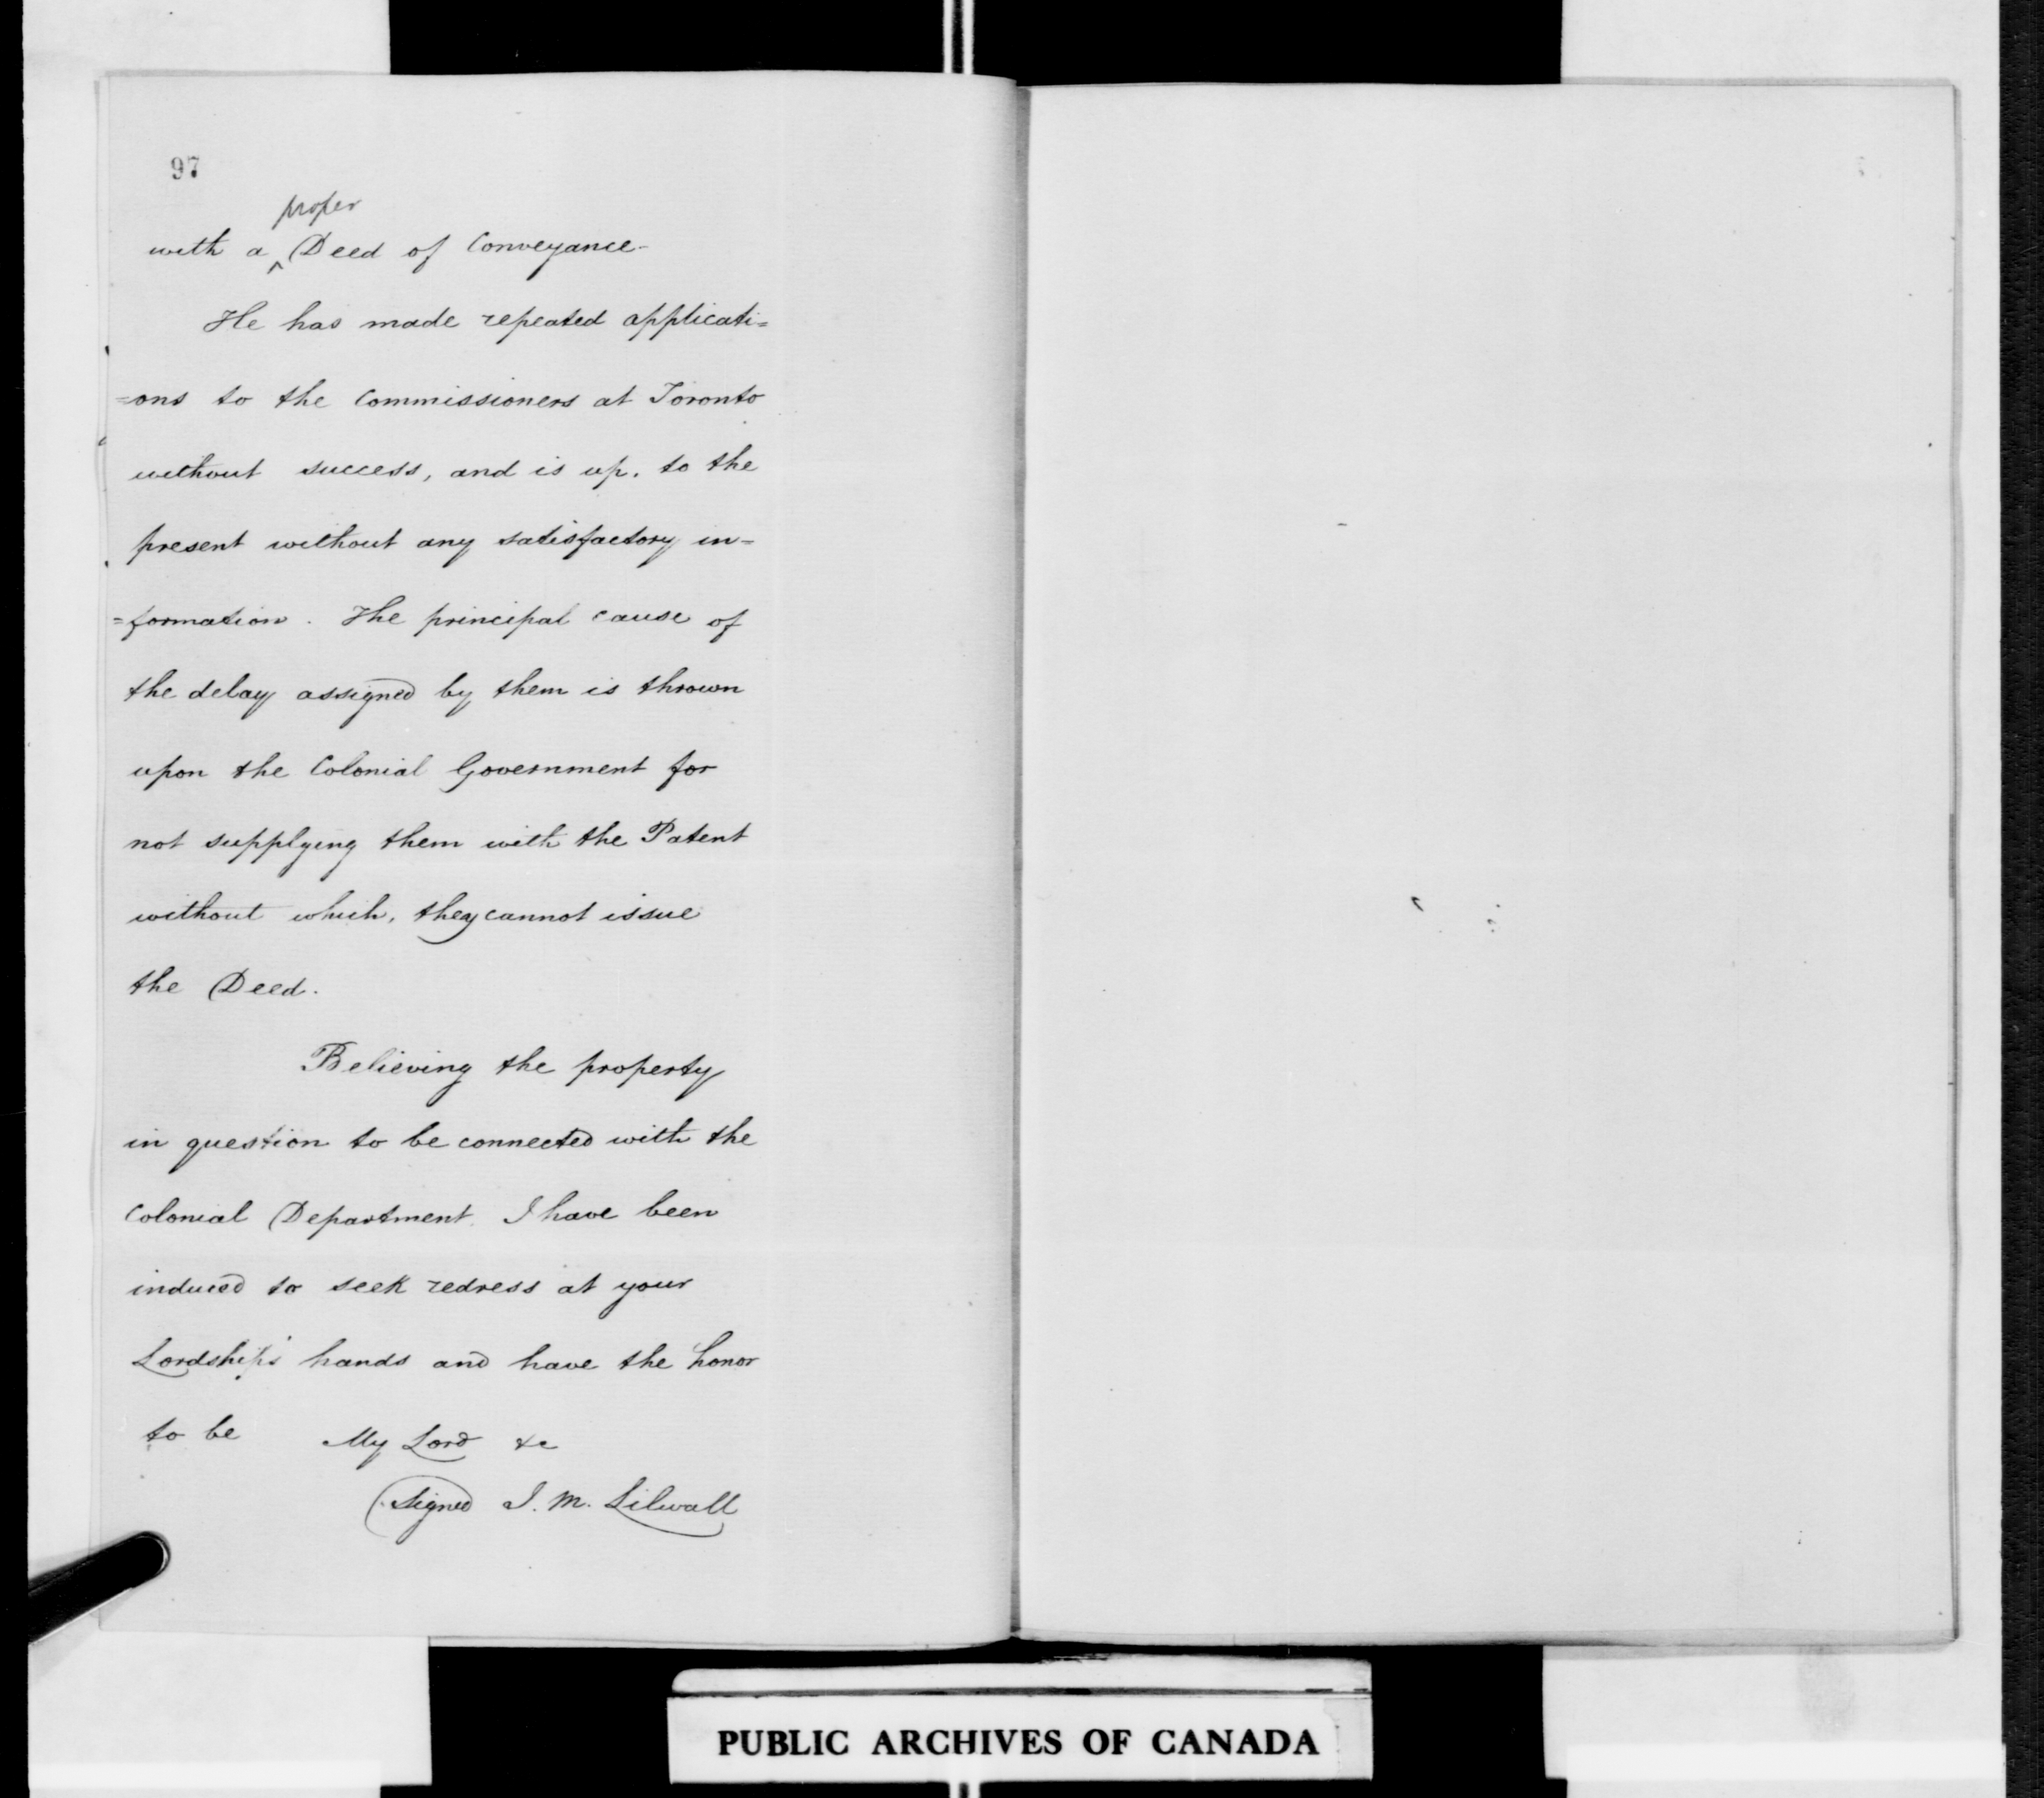 97
proper
with a ^ Deed of Conveyance-
He has made repeated applicati=
=ons to the Commissioners at Toronto
without success, and is up. to the
present without any satisfactory in=
=formation. The principal cause of
the delay assigned by them is thrown
upon the Colonial Government for
not supplying them with the Patent
without which, they cannot issue
the Deed.
Believing the property
in question to be connected with the
Colonial Department. I have been
induced to seek redress at your
Lordship's hands and have the honor
to be My Lord &c
(Signed J. M. Lilwall
PUBLIC ARCHIVES OF CANADA